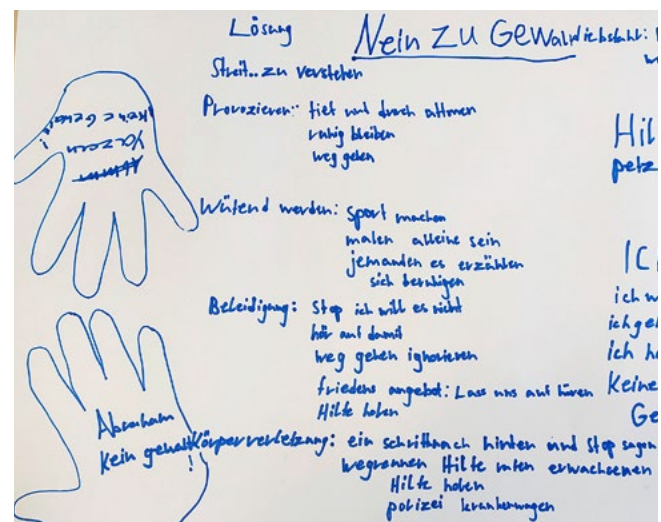 Lösung
Nein zu Gewal
Streit.. zu verstehen
Provozieren: tief und durch attmen
ruhig bleiben
weg gehen
Wütend werden: sport machen
malen alleine sein
jemanden es erzählen
sich beruhigen
Beleidigung: Stop ich will es nicht
hör auf damit
weg gehen ignorieren
friedens angebot: Lass uns auf hören
Hilfe holen
Körperverletzung: ein schritt nach hinten und stop sagen
wegrennen Hilfe rufen erwachsenen
Hilfe holen
polizei krankenwagen
Keine Gewalt!
Yazern
Abraham
Kein gewalt!
Hil
petz
ICh
ich w
ich ge
ich ha
Keine
Ge